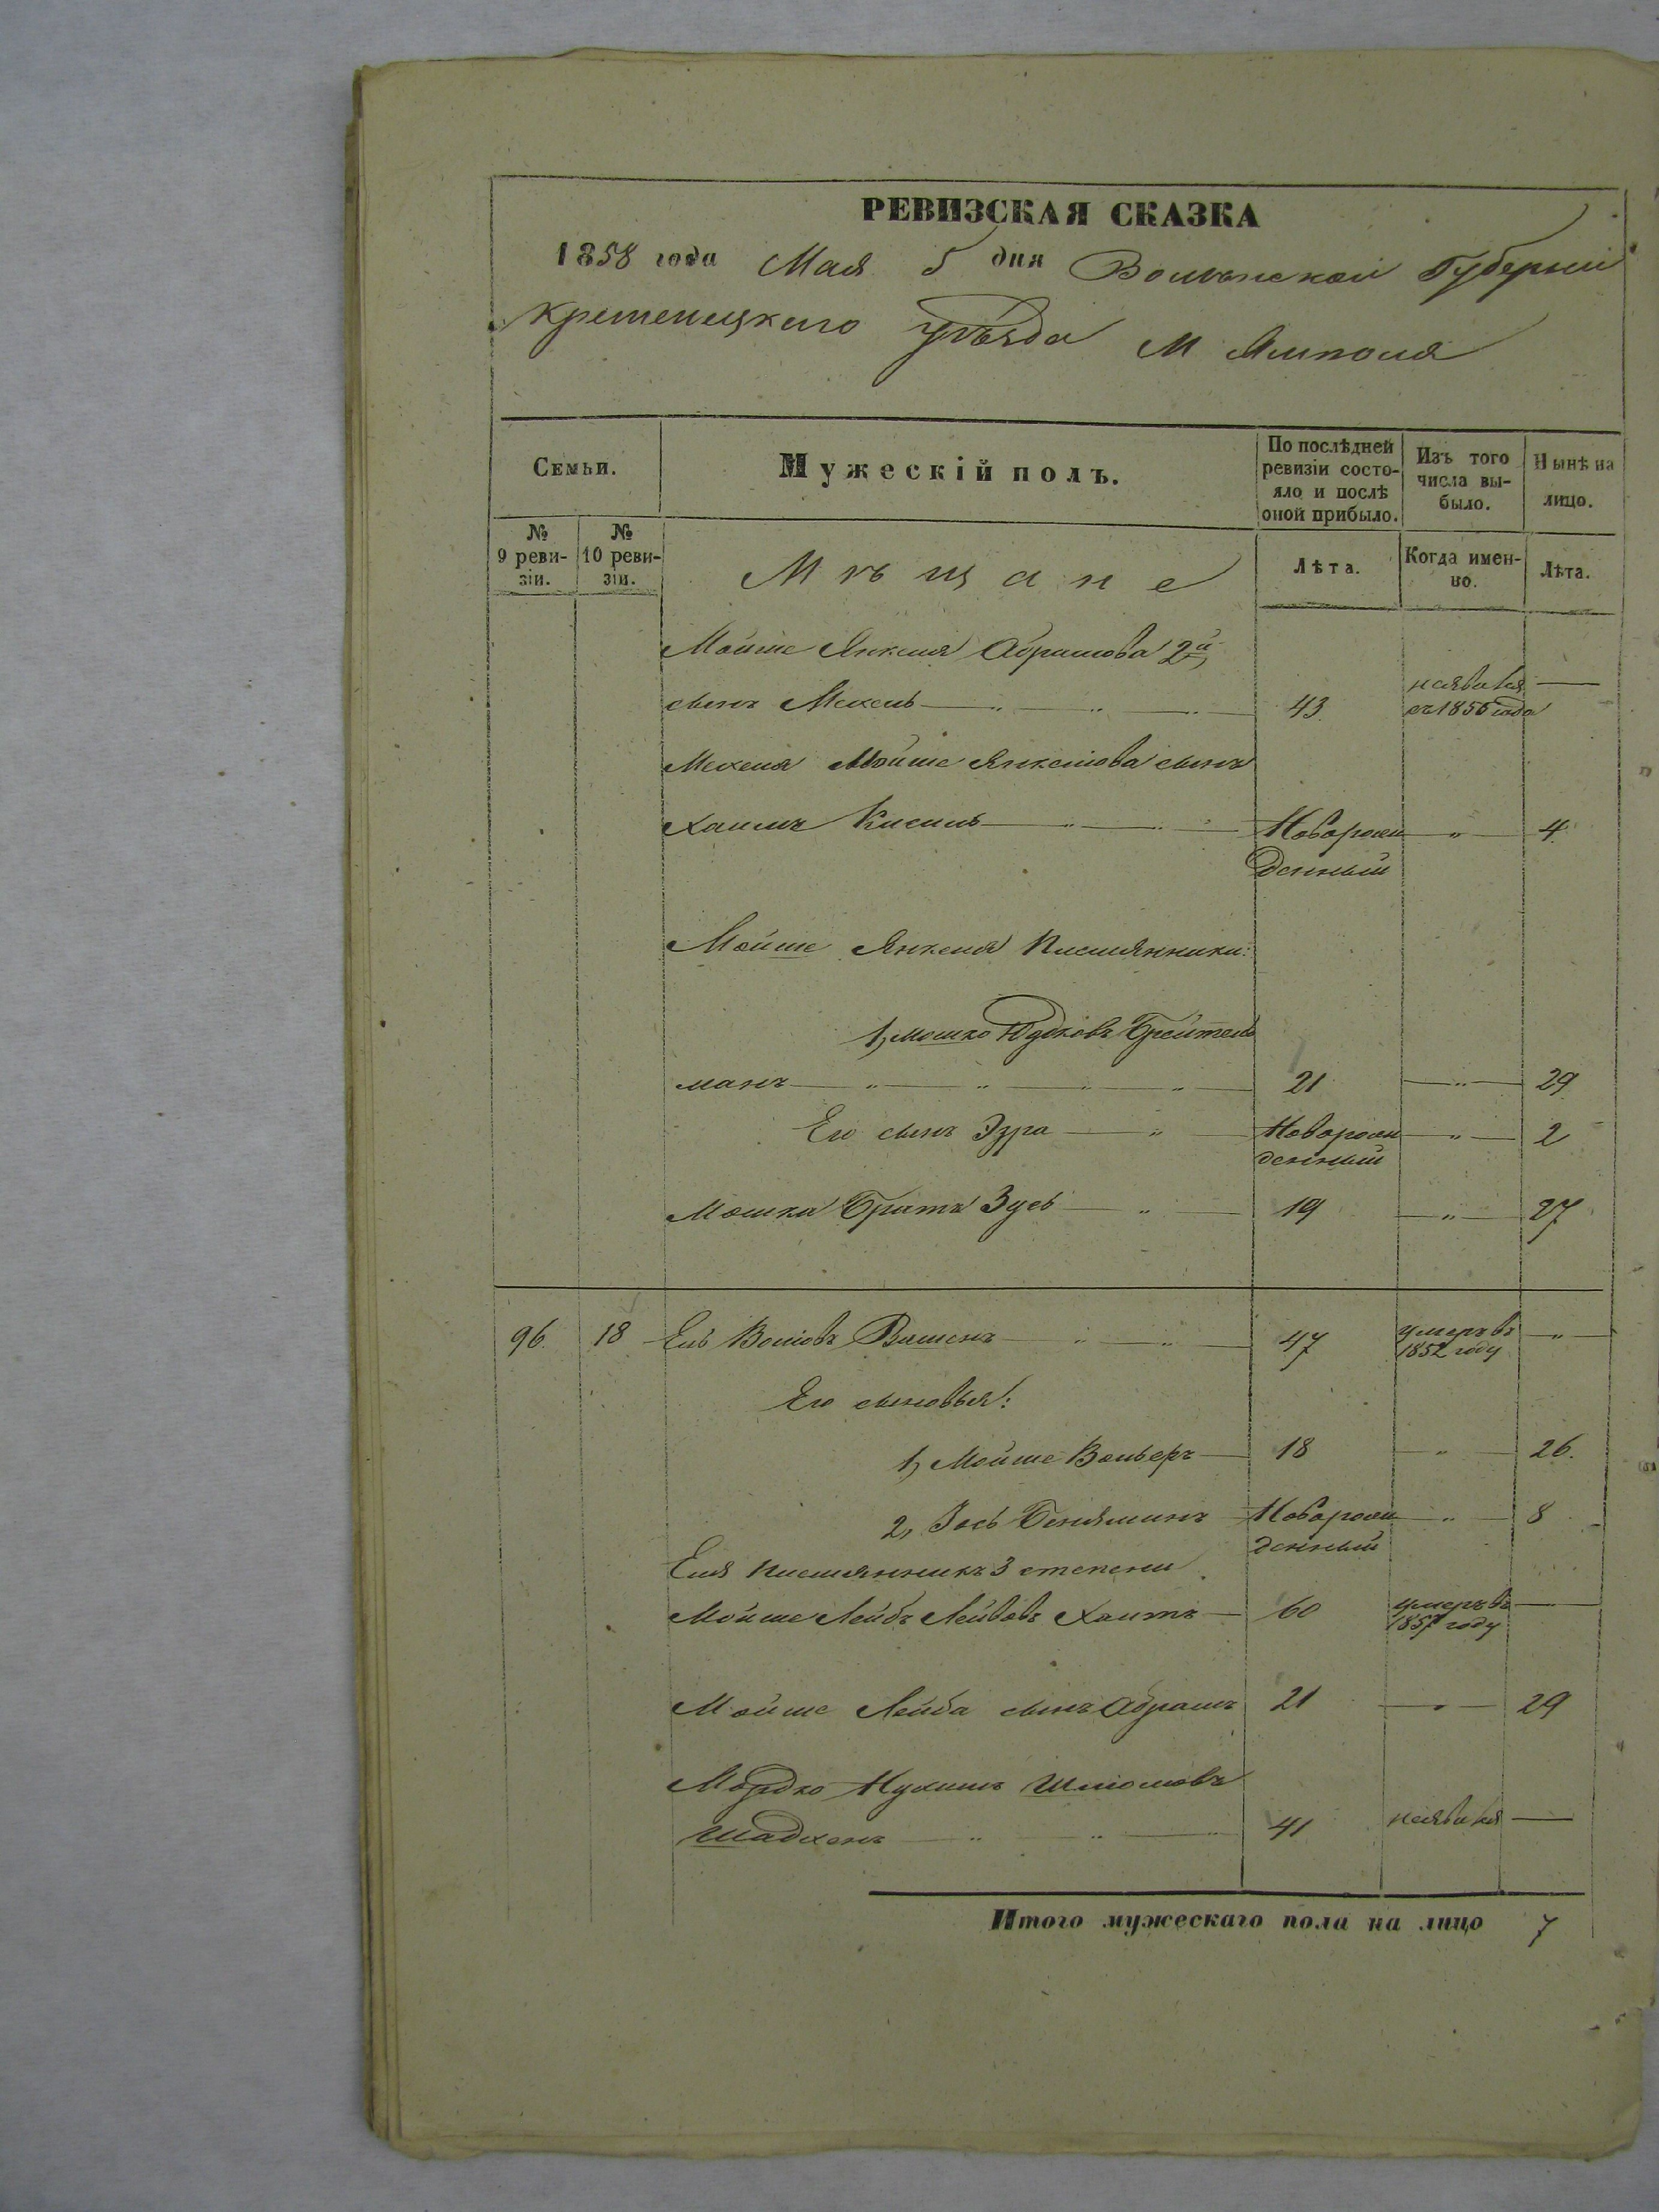 РЕВИЗСКАЯ СКАЗКА
1858 года Мая 5 дня Волынской Губерніи
Кременецкаго уѣзда М Ямполя
Семьи.
Мужескій полъ.
По послѣдней ревизіи состояло и послѣ оной прибыло.
Изъ того числа выбыло.
Нынѣ на лицо.
№ 9 ревизіи.
№ 10 ревизіи.
Мѣщане
Лѣта.
Когда именно.
Лѣта.
Мойше Янкеля Абрамова 2й
сынъ Мехель 43 неявился съ 1850 года —
Мехеля Мойше Янкелова сынъ
Хаимъ Кисиль Новорожденный " 4
Мойше Янкеля племянники:
1, Мошко Юдковъ Брейтель
манъ 21 " 29
Его сынъ Эзра Новорожденный " 2
Мошка Братъ Зусь 19 " 27
96. 18 Ель Волковъ 47 умеръ въ 1852 году "
Его сыновья:
1, Мойше Вольеръ 18 " 26.
2, Іось Беньяминъ Новорожденный " 8
Еля племянникъ 3 степени
Мойше Лейбъ Лейбовъ 60 умеръ въ 1857 году —
Мойше Лейба сынъ Абрамъ 21 " 29
Мордко Нухимъ Шліомовъ
Шадхенъ 41 неявился —
Итого мужескаго пола на лицо 7